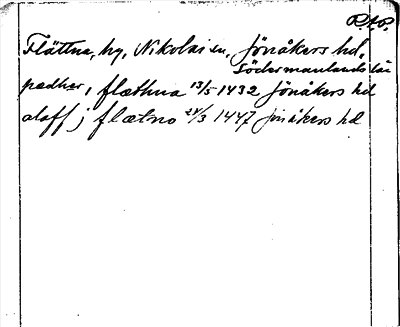 R.A.P.
Flättna, by, Nikolai sn, Jönåkers hd,
Södermanlands län
pædher, j flæthna 13/5 1432 Jönåkers hd
olaff j flætno 24/3 1447 Jönåkers hd